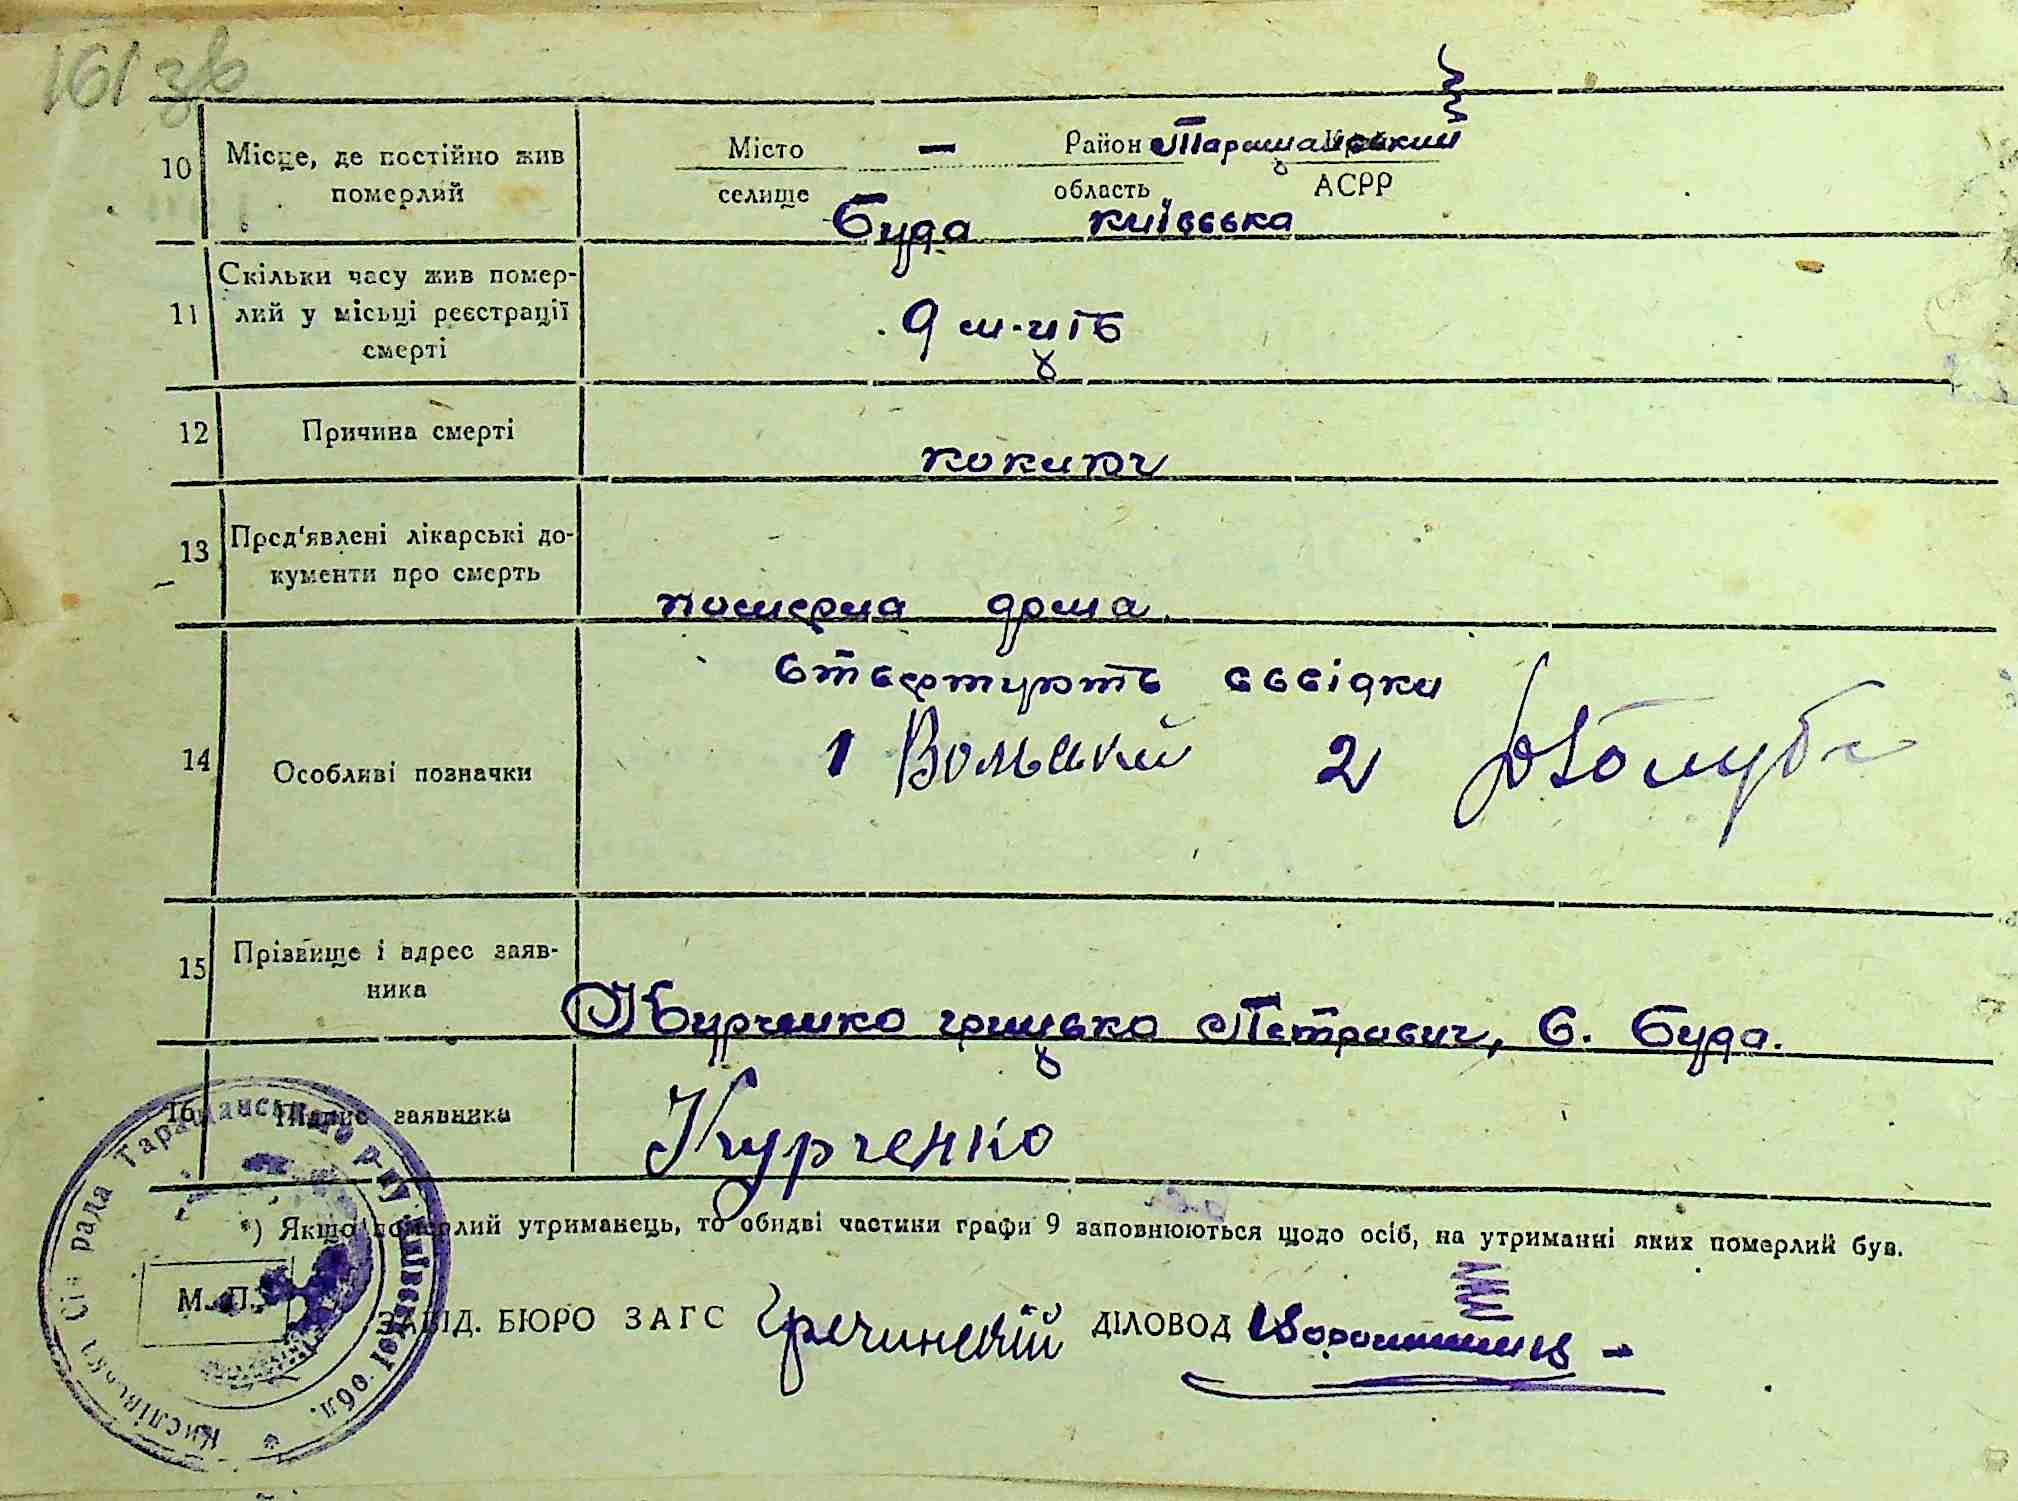 161 зв
10 Місце, де постійно жив померлий
Місто — Район Таращанський
селище область АСРР
Буда київська
11 Скільки часу жив помер-
лий у місьці реєстрації
смерті
9 м-ців
12 Причина смерті
коключ
13 Пред'явлені лікарські до-
кументи про смерть
померла дома
14 Особливі позначки
ствертують свідки
1 Вольский 2 Голуб
15 Прізвище і адрес заяв-
ника
Курченко грицько Петрович, с. Буда.
16 Підпис заявника
Курченко
*) Якщо померлий утриманець, то обидві частини графи 9 заповнюються щодо осіб, на утриманні яких померлий був.
М. П.
ЗАВІД. БЮРО ЗАГС Гречинский ДІЛОВОД
Кислівська Сіл рада Таращанського р-ну Київської обл.